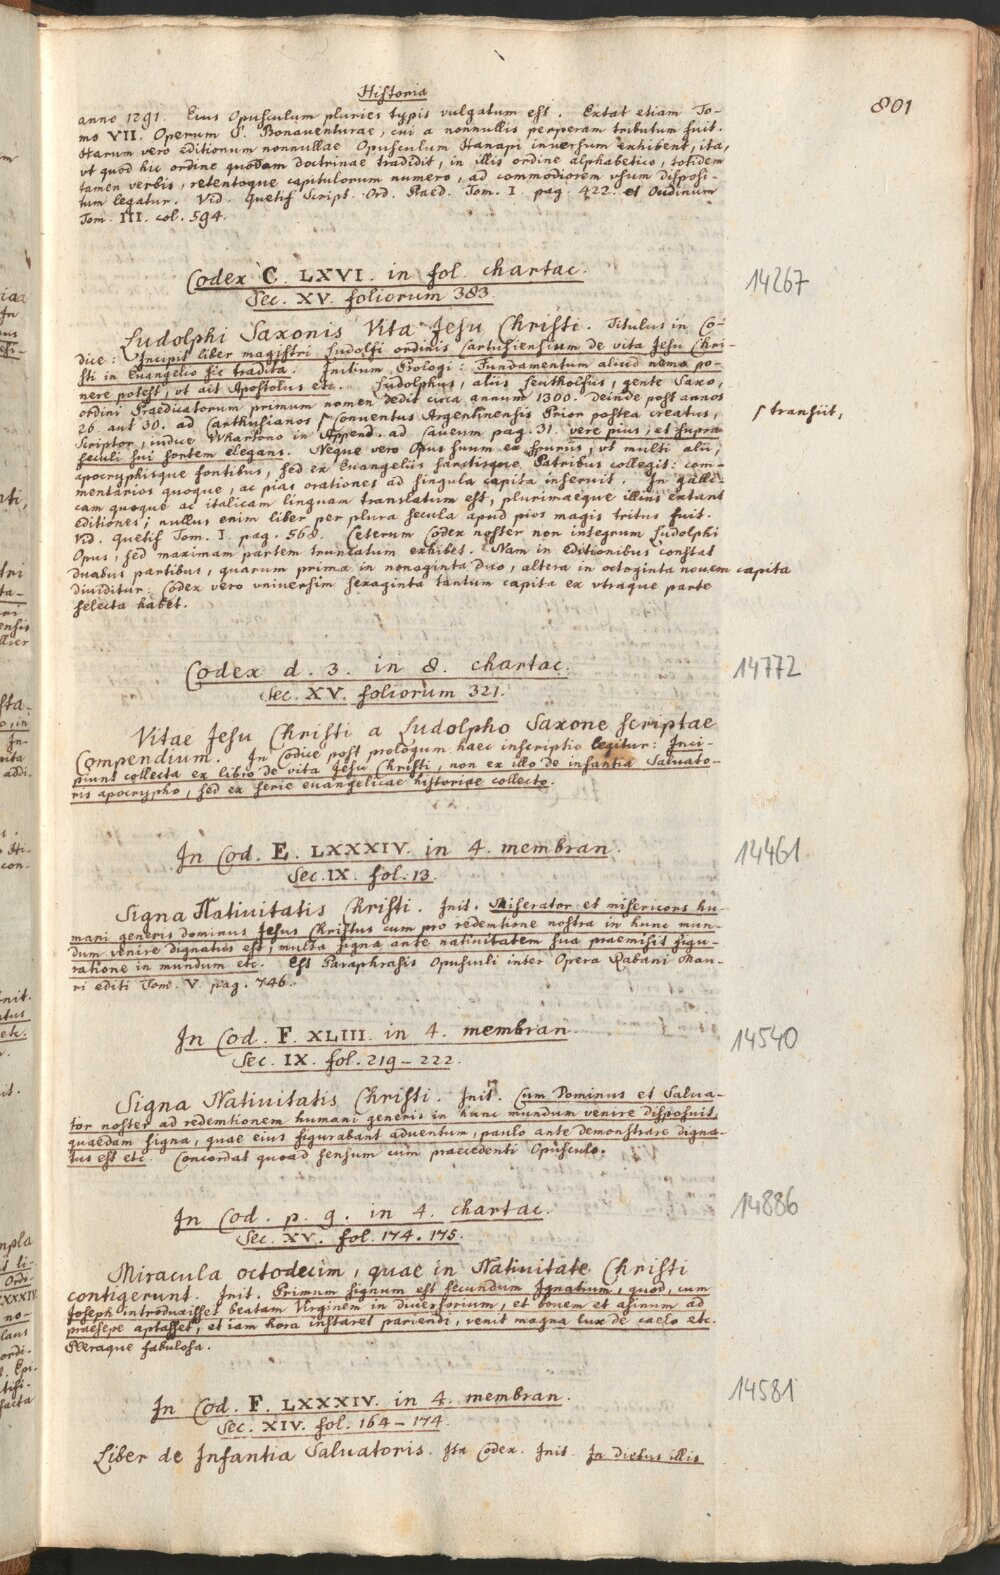 Historia
801
anno 1291. Eius Opusculum pluries typis vulgatum est. Extat etiam To-
mo VII. Operum S. Bonaventurae, cui a nonnullis perperam tributum fuit.
Harum vero editionum nonnullae Opusculum Hanapi inversum exhibent, ita,
vt quod hic ordine quodam doctrinae tradidit, in illis ordine alphabetico, totidem
tamen verbis, retentoque capitulorum numero, ad commodiorem vsum disposi-
tum legatur. Vid. Quetif Script. Ord. Praed. Tom. I. pag. 422. et Oudinum
Tom. III. col. 594.
Codex C. LXVI. in fol. chartac.
14267
Sec. XV. foliorum 383.
Ludolphi Saxonis Vita Jesu Christi. Titulus in Co-
dice: Incipit liber magistri Ludolfi ordinis Cartusiensium de vita Jesu Chri-
sti in Euangelio sic tradita. Initium Prologi: Fundamentum aliud nemo po-
nere potest, vt ait Apostolus etc. Ludolphus, aliis Leutholfus, gente Saxo,
ordini Praedicatorum primum nomen dedit circa annum 1300. Deinde post annos
26. aut 30. ad Carthusianos ſ Conuentus Argentinensis Prior postea creatus,
ſ transiit,
Scriptor, iudice Whartono in Append. ad Caueum pag. 31. vere pius, et supra
seculi sui sortem elegans. Neque vero Opus suum ex spuriis, vt multi alii,
apocryphisque fontibus, sed ex Euangeliis sanctisque Patribus collegit: com-
mentarios quoque, ac pias orationes ad singula capita inseruit. In galli-
cam quoque ac italicam linguam translatum est, plurimaeque illius extant
editiones; nullus enim liber per plura secula apud pios magis tritus fuit.
Vid. Quetif Tom. I. pag. 568. Ceterum Codex noster non integrum Ludolphi
Opus, sed maximam partem truncatum exhibet. Nam in editionibus constat
duabus partibus, quarum prima in nonaginta duo, altera in octoginta nouem capita
diuiditur: Codex vero vniuersim sexaginta tantum capita ex vtraque parte
selecta habet.
Codex d. 3. in 8. chartac.
14772
Sec. XV. foliorum 321.
Vitae Jesu Christi a Ludolpho Saxone scriptae
Compendium. In Codice post prologum haec inscriptio legitur: Inci-
piunt collecta ex libro de vita Jesu Christi, non ex illo de infantia Saluato-
ris apocrypho, sed ex serie euangelicae historiae collecto.
In Cod. E. LXXXIV. in 4. membran.
14461
Sec. IX. fol. 13.
Signa Natiuitatis Christi. Init. Miserator et misericors hu-
mani generis dominus Jesus Christus cum pro redemtione nostra in hunc mun-
dum venire dignatus est, multa signa ante natiuitatem sua praemisit figu-
ratione in mundum etc. Est Paraphrasis Opusculi inter Opera Rabani Mau-
ri editi Tom. V. pag. 746.
In Cod. F. XLIII. in 4. membran.
14540
Sec. IX. fol. 219-222.
Signa Natiuitatis Christi. Init. Cum Dominus et Salua-
tor noster ad redemtionem humani generis in hunc mundum venire disposuit,
quaedam signa, quae eius figurabant aduentum, paulo ante demonstrare digna-
tus est etc. Concordat quoad sensum cum praecedenti Opusculo.
In Cod. p. 9. in 4. chartac.
14886
Sec. XV. fol. 174. 175.
Miracula octodecim, quae in Natiuitate Christi
contigerunt. Init. Primum signum est secundum Ignatium, quod, cum
Joseph introduxisset beatam Virginem in diuersorium, et bouem et asinum ad
praesepe aptasset, et iam hora instaret pariendi, venit magna lux de caelo etc.
Pleraque fabulosa.
In Cod. F. LXXXIV. in 4. membran.
14581
Sec. XIV. fol. 164-174.
Liber de Infantia Saluatoris. Ita Codex. Init. In diebus illis